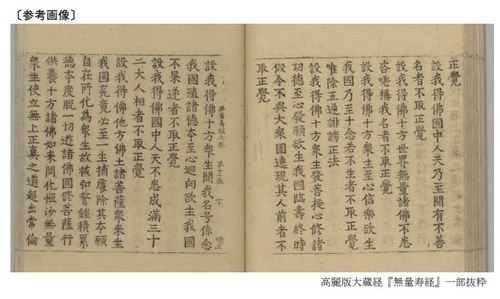 〔参考画像〕
正覺
設我得佛國中人天乃至聞有不善
名者不取正覺
設我得佛十方世界無量諸佛不悉
咨嗟稱我名者不取正覺
設我得佛十方衆生至心信樂欲生
我國乃至十念若不生者不取正覺
唯除五逆誹謗正法
設我得佛十方衆生發菩提心修諸
功德至心發願欲生我國臨壽終時
假令不與大衆圍遶現其人前者不
取正覺
設我得佛十方衆生聞我名号係念
我國殖諸德本至心迴向欲生我國
不果遂者不取正覺
設我得佛國中人天不悉成滿三十
二大人相者不取正覺
設我得佛他方佛土諸菩薩衆来生
我國究竟必至一生補處除其本願
自在所化為衆生故被弘誓鎧積累
德本度脫一切遊諸佛國修菩薩行
供養十方諸佛如来開化恒沙無量
衆生使立無上正真之道超出常倫
高麗版大蔵経『無量寿経』一部抜粋